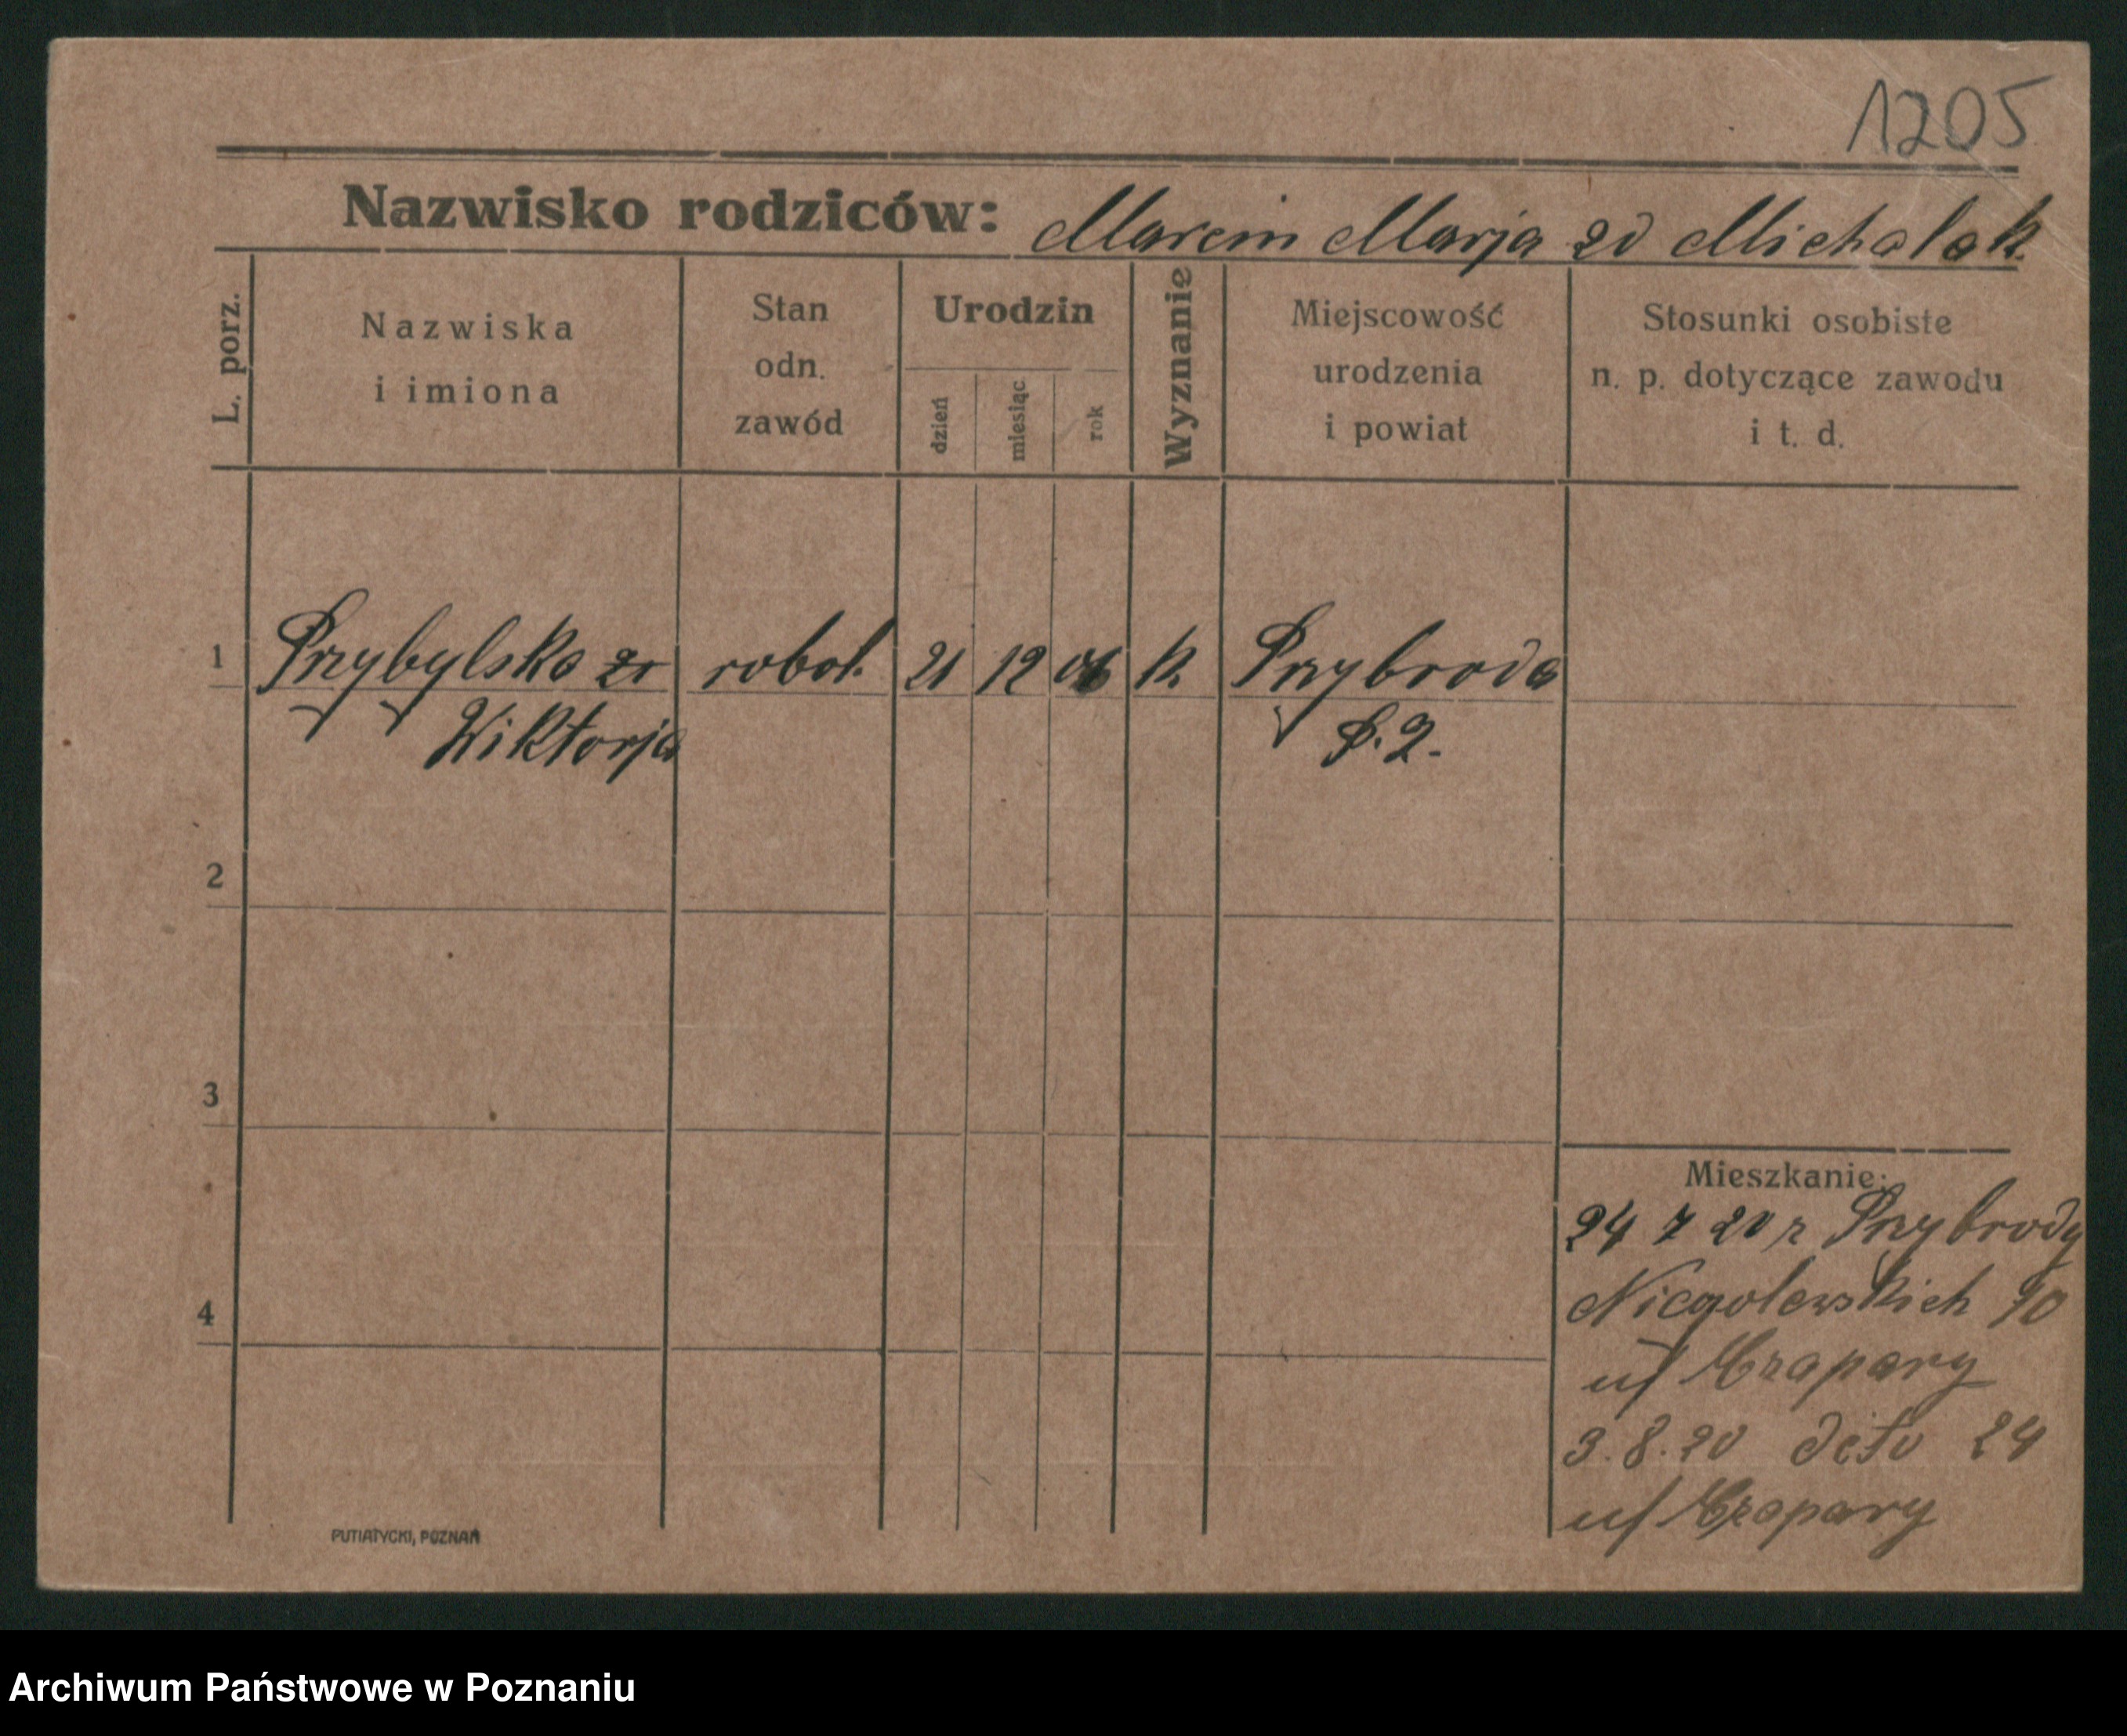 1205
Nazwisko rodziców: Marcin Marja zd Michalak.
L. porz.
Nazwiska
i imiona
Stan
odn.
zawód
Urodzin
dzień
miesiąc
rok
Wyznanie
Miejscowość
urodzenia
i powiat
Stosunki osobiste
n. p. dotyczące zawodu
i t. d.
1 Przybylska robot. 21 12 06 k. Przybroda
Wiktorja
2
3
4
Mieszkanie:
24 7 20 z Przybrody
Niegolewskich 10
u/ Czapary
3.8.20 deto 24
u/ Czapary
PUTIATYCKI, POZNAŃ
Archiwum Państwowe w Poznaniu